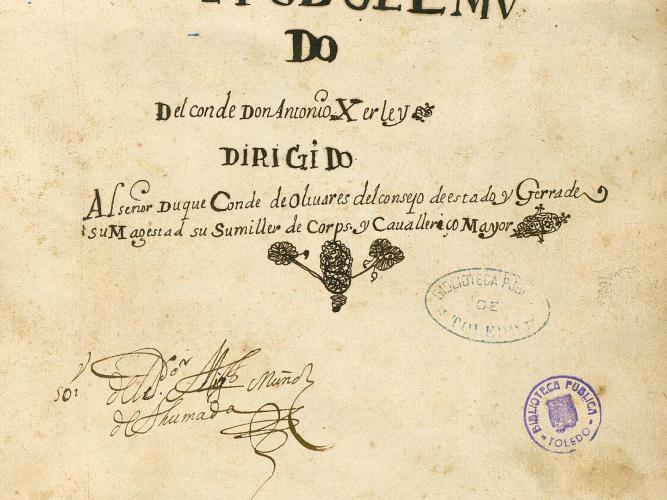 DO
Del conde Don Antonio Xerley
DIRIGIDO
Al señor Duque Conde de Oliuares del consejo de estado y Gerra de
su Magestad su Sumiller de Corps. y Cauallerico Mayor
BIBLIOTECA
DE
TOLEDO
Muñoz
de Ahumada
BIBLIOTECA PÚBLICA
- TOLEDO -